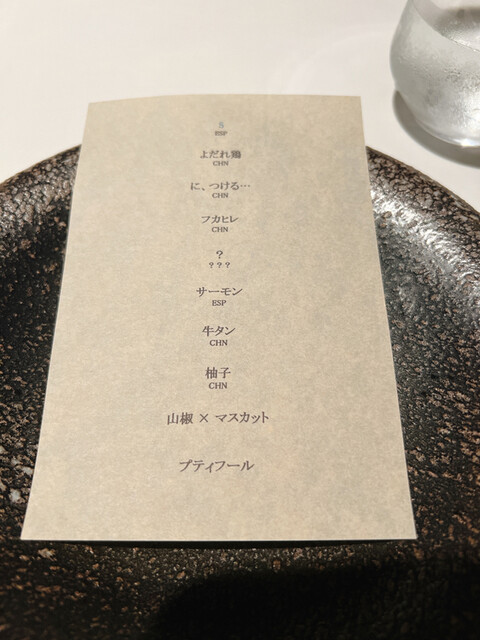 5
ESP
よだれ鶏
CHN
に、つける…
CHN
フカヒレ
CHN
？
？？？
サーモン
ESP
牛タン
CHN
柚子
CHN
山椒 × マスカット
プティフール